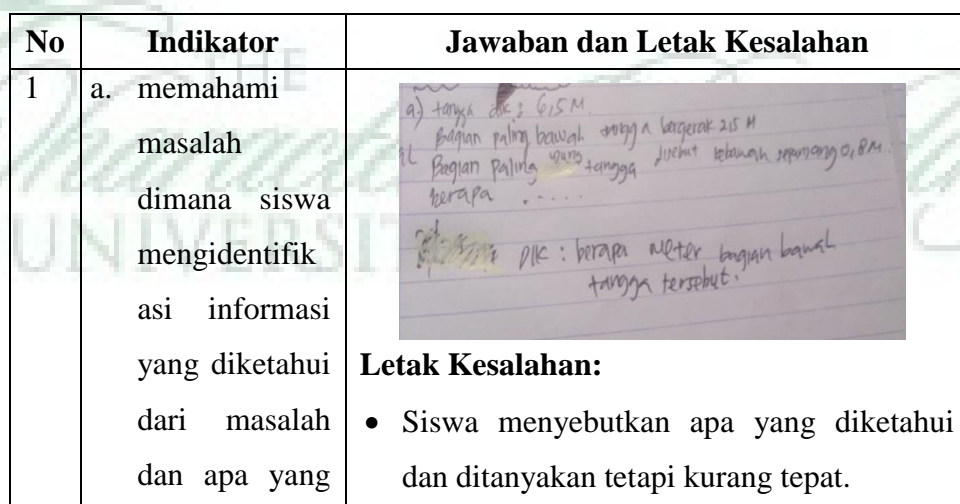 No Indikator Jawaban dan Letak Kesalahan
1 a. memahami
masalah
dimana siswa
mengidentifik
asi informasi
yang diketahui
dari masalah
dan apa yang
a.) tangga dik : 6,5 M
Bagian paling bawah tangga bergerak 2,5 M
Bagian Paling tangga kebawah sepanjang 0,8 M
berapa .....
DIK : berapa meter bagian bawah
tangga tersebut.
Letak Kesalahan:
• Siswa menyebutkan apa yang diketahui
dan ditanyakan tetapi kurang tepat.
THE
UNIVERSI